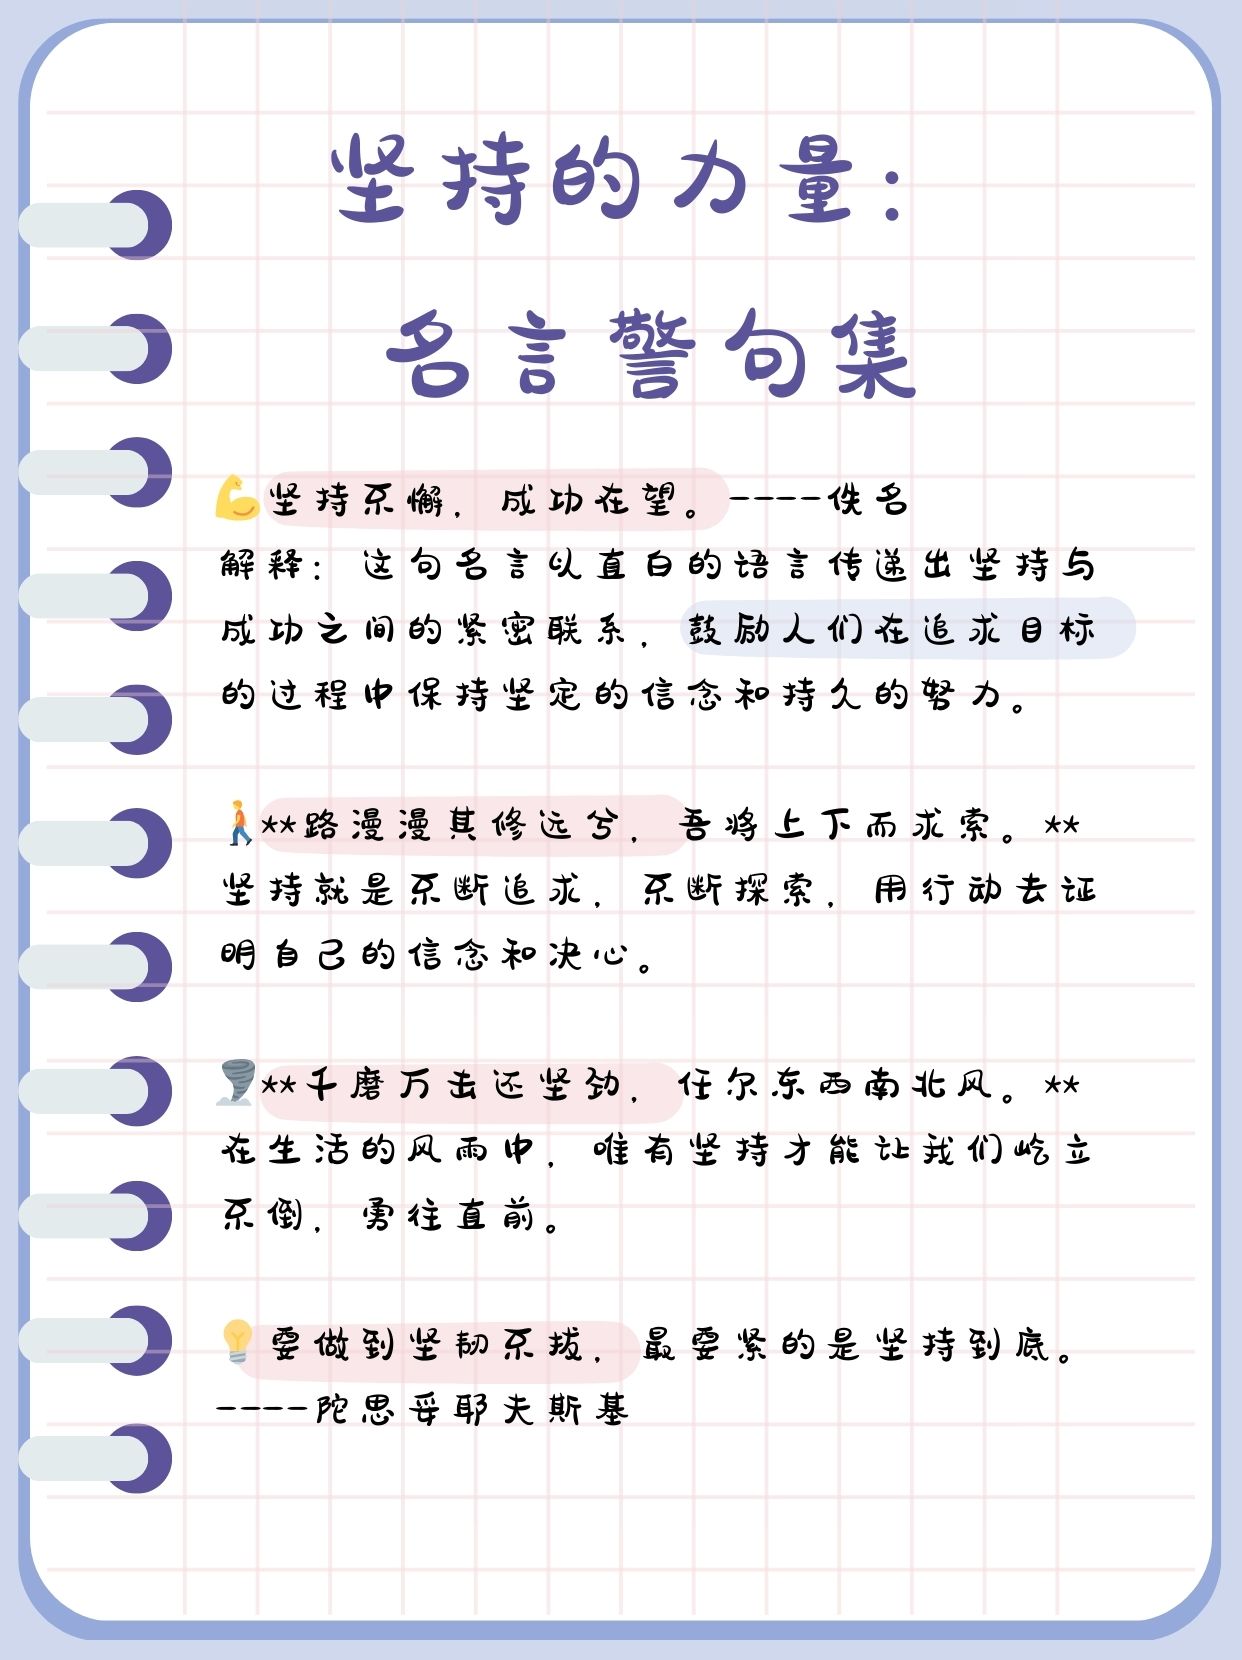 坚持的力量：
名言警句集
💪坚持不懈，成功在望。----佚名
解释：这句名言以直白的语言传递出坚持与
成功之间的紧密联系，鼓励人们在追求目标
的过程中保持坚定的信念和持久的努力。
🚶**路漫漫其修远兮，吾将上下而求索。**
坚持就是不断追求，不断探索，用行动去证
明自己的信念和决心。
🌪️**千磨万击还坚劲，任尔东西南北风。**
在生活的风雨中，唯有坚持才能让我们屹立
不倒，勇往直前。
💡要做到坚韧不拔，最要紧的是坚持到底。
----陀思妥耶夫斯基